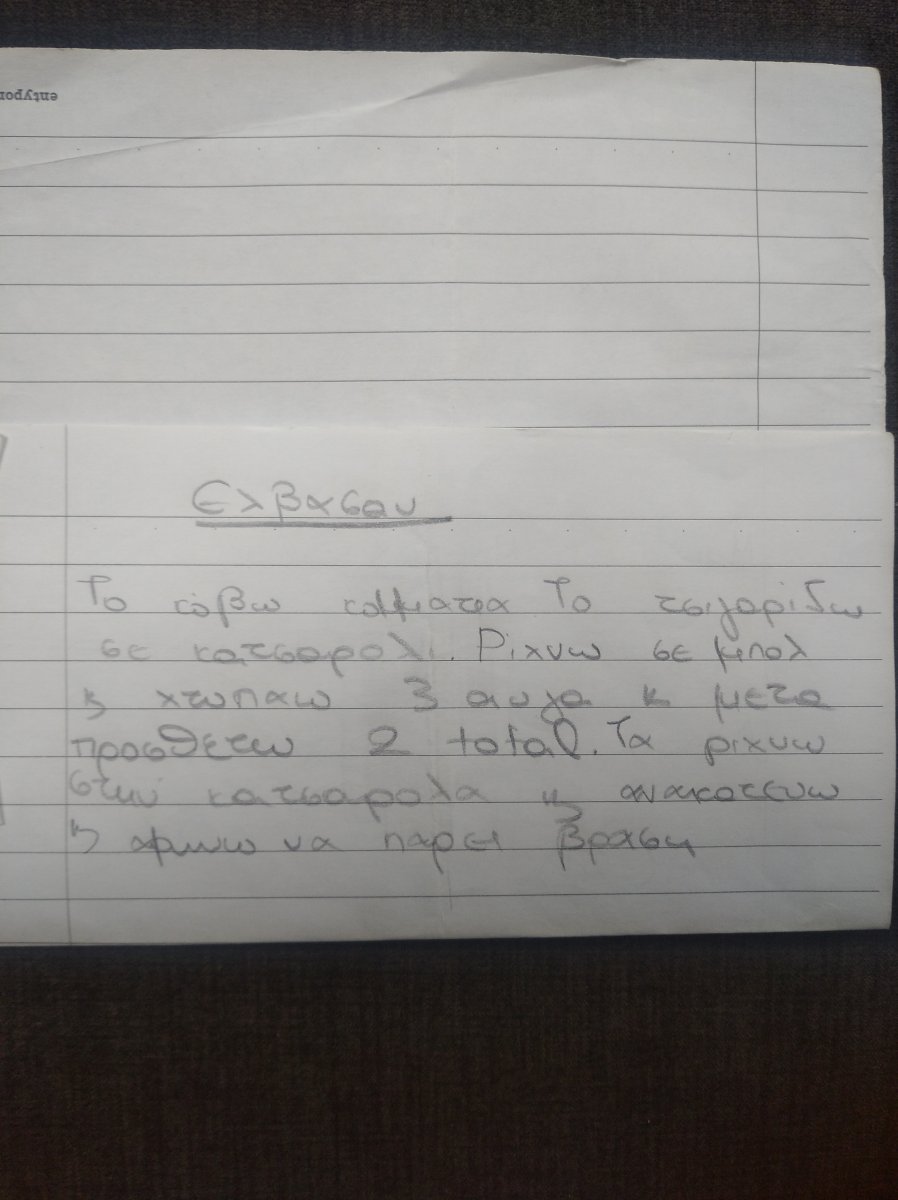 entypor
Ελβασαν
Το κόβω κομματια Το τσιγαρίδω
σε κατσαρολι. Ριχνω σε μπολ
κ χτυπαω 3 αυγα κ μετα
προσθετω 2 total. Τα ριχνω
στην κατσαρολα κ ανακατευω
κ αφηνω να παρει βραση